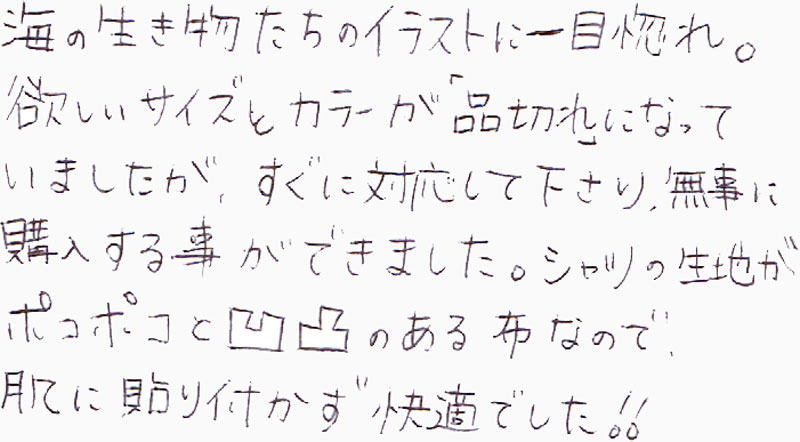 海の生き物たちのイラストに一目惚れ。
欲しいサイズとカラーが「品切れ」になって
いましたが、すぐに対応して下さり、無事に
購入する事ができました。シャツの生地が
ポコポコと凹凸のある布なので、
肌に貼り付かず快適でした!!